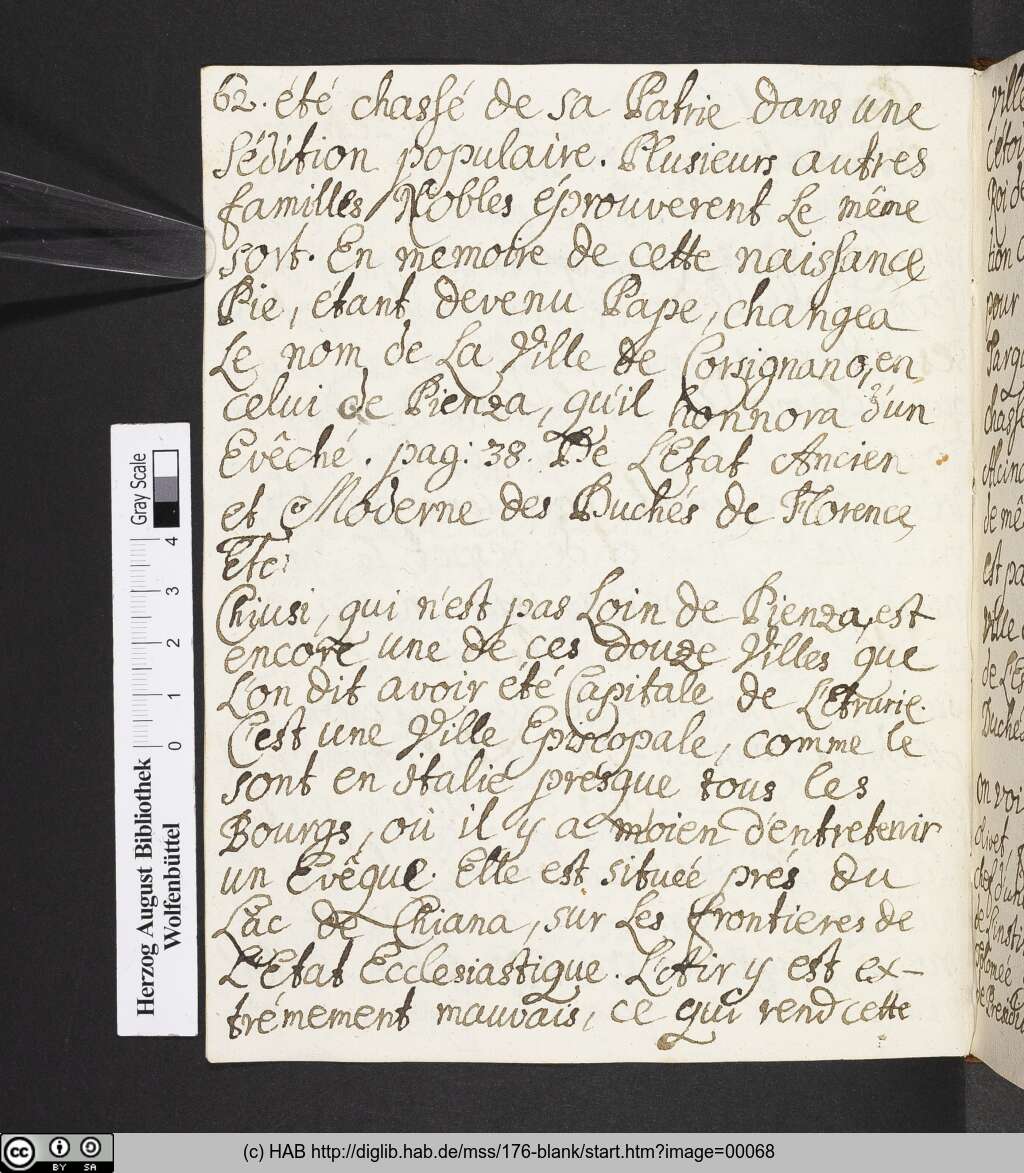 62. été chassé de sa Patrie dans une
Sédition populaire. Plusieurs autres
familles Nobles éprouverent Le même
sort. En memoire de cette naissance,
Pie, étant devenu Pape, changea
Le nom de La Ville de Corsignano, en
celui de Pienza, qu'il honnora d'un
Evêché. pag: 38. De L'Etat Ancien
et Moderne des Duchés de Florence,
Etc:
Chiusi, qui n'est pas Loin de Pienza, est
encore une de ces douze Villes que
L'on dit avoir été Capitale de L'Etrurie.
C'est une Ville Episcopale, comme le
sont en Italie présque tous les
Bourgs, où il y a moien d'entretenir
un Evêque. Elle est située prés du
Lac de Chiana, sur Les frontieres de
L'Etat Ecclesiastique. L'Air y est ex-
trémement mauvais, ce qui rend cette
ville
Roi de
pour
de mê
est pa
ville
Duchés
on voi
Herzog August Bibliothek
Wolfenbüttel
Gray Scale
0 1 2 3 4
cc BY SA
(c) HAB http://diglib.hab.de/mss/176-blank/start.htm?image=00068